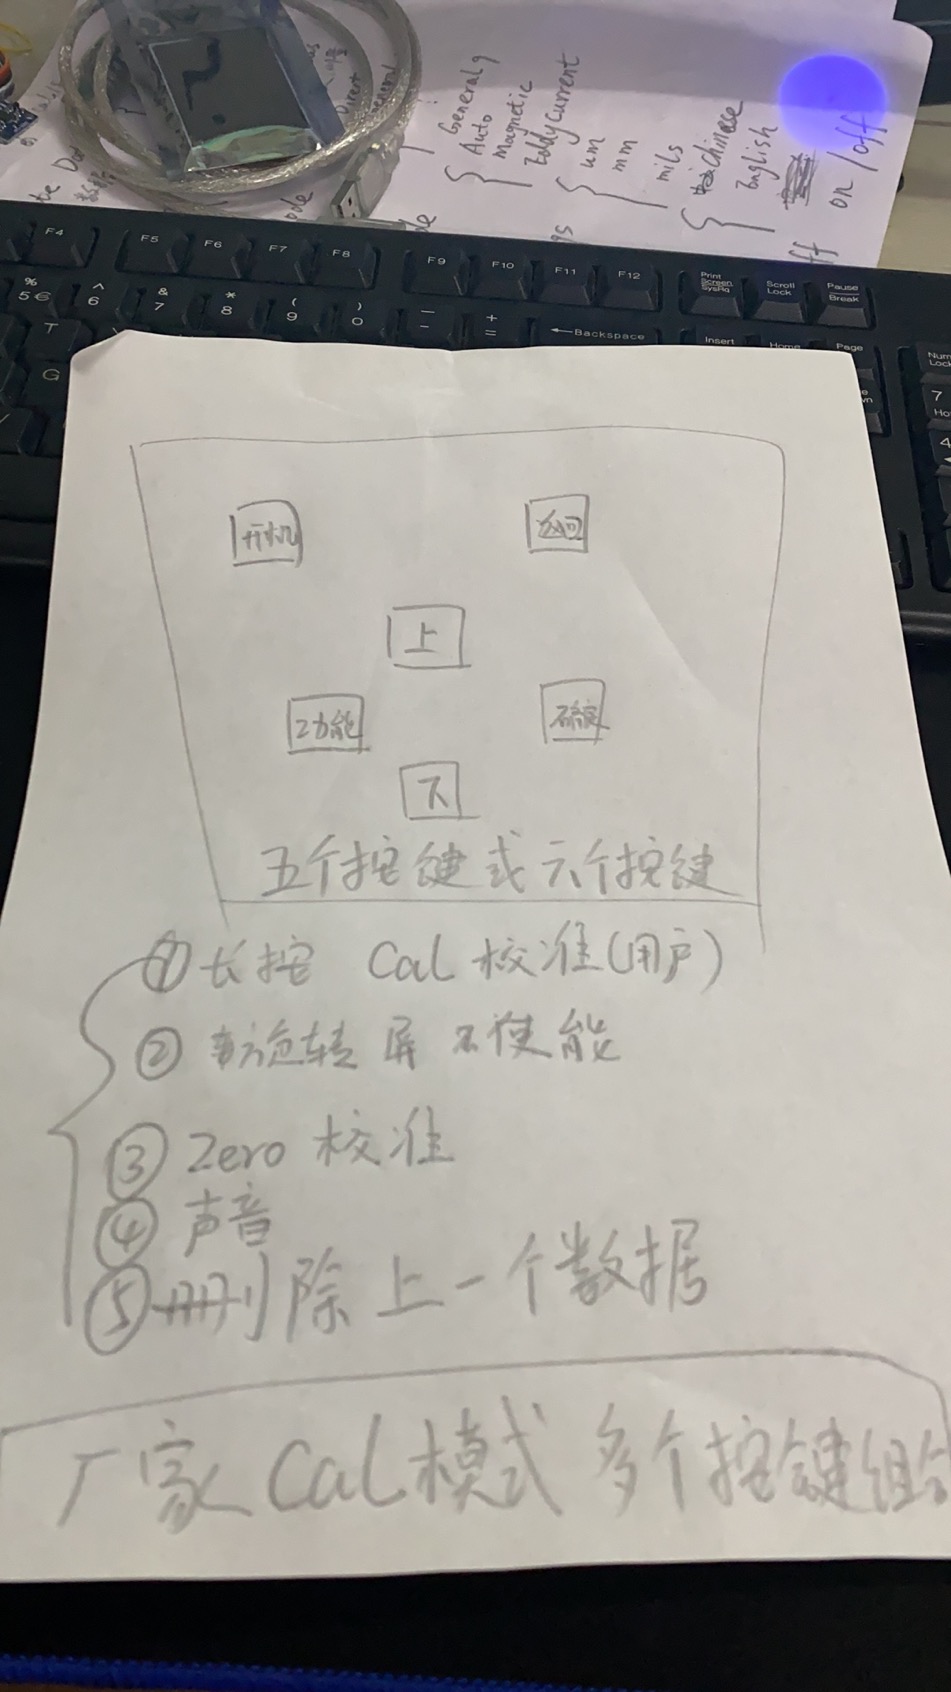 General
Auto
Magnetic
Eddy Current
um
mm
mils
chinese
English
on/off
F4 F5 F6 F7 F8 F9 F10 F11 F12 Print Screen SysRq Scroll Lock Pause Break
% 5 € ^ 6 & 7 * 8 ( 9 ) 0 — - + = ←Backspace Insert Home Page
T
G
Num Lock
7
4
开机 返回
上
功能 确定
下
五个按键或六个按键
① 长按 Cal 校准(用户)
② 旋转屏 不使能
③ Zero 校准
④ 声音
⑤ 删除上一个数据
厂家 Cal 模式 多个按键组合